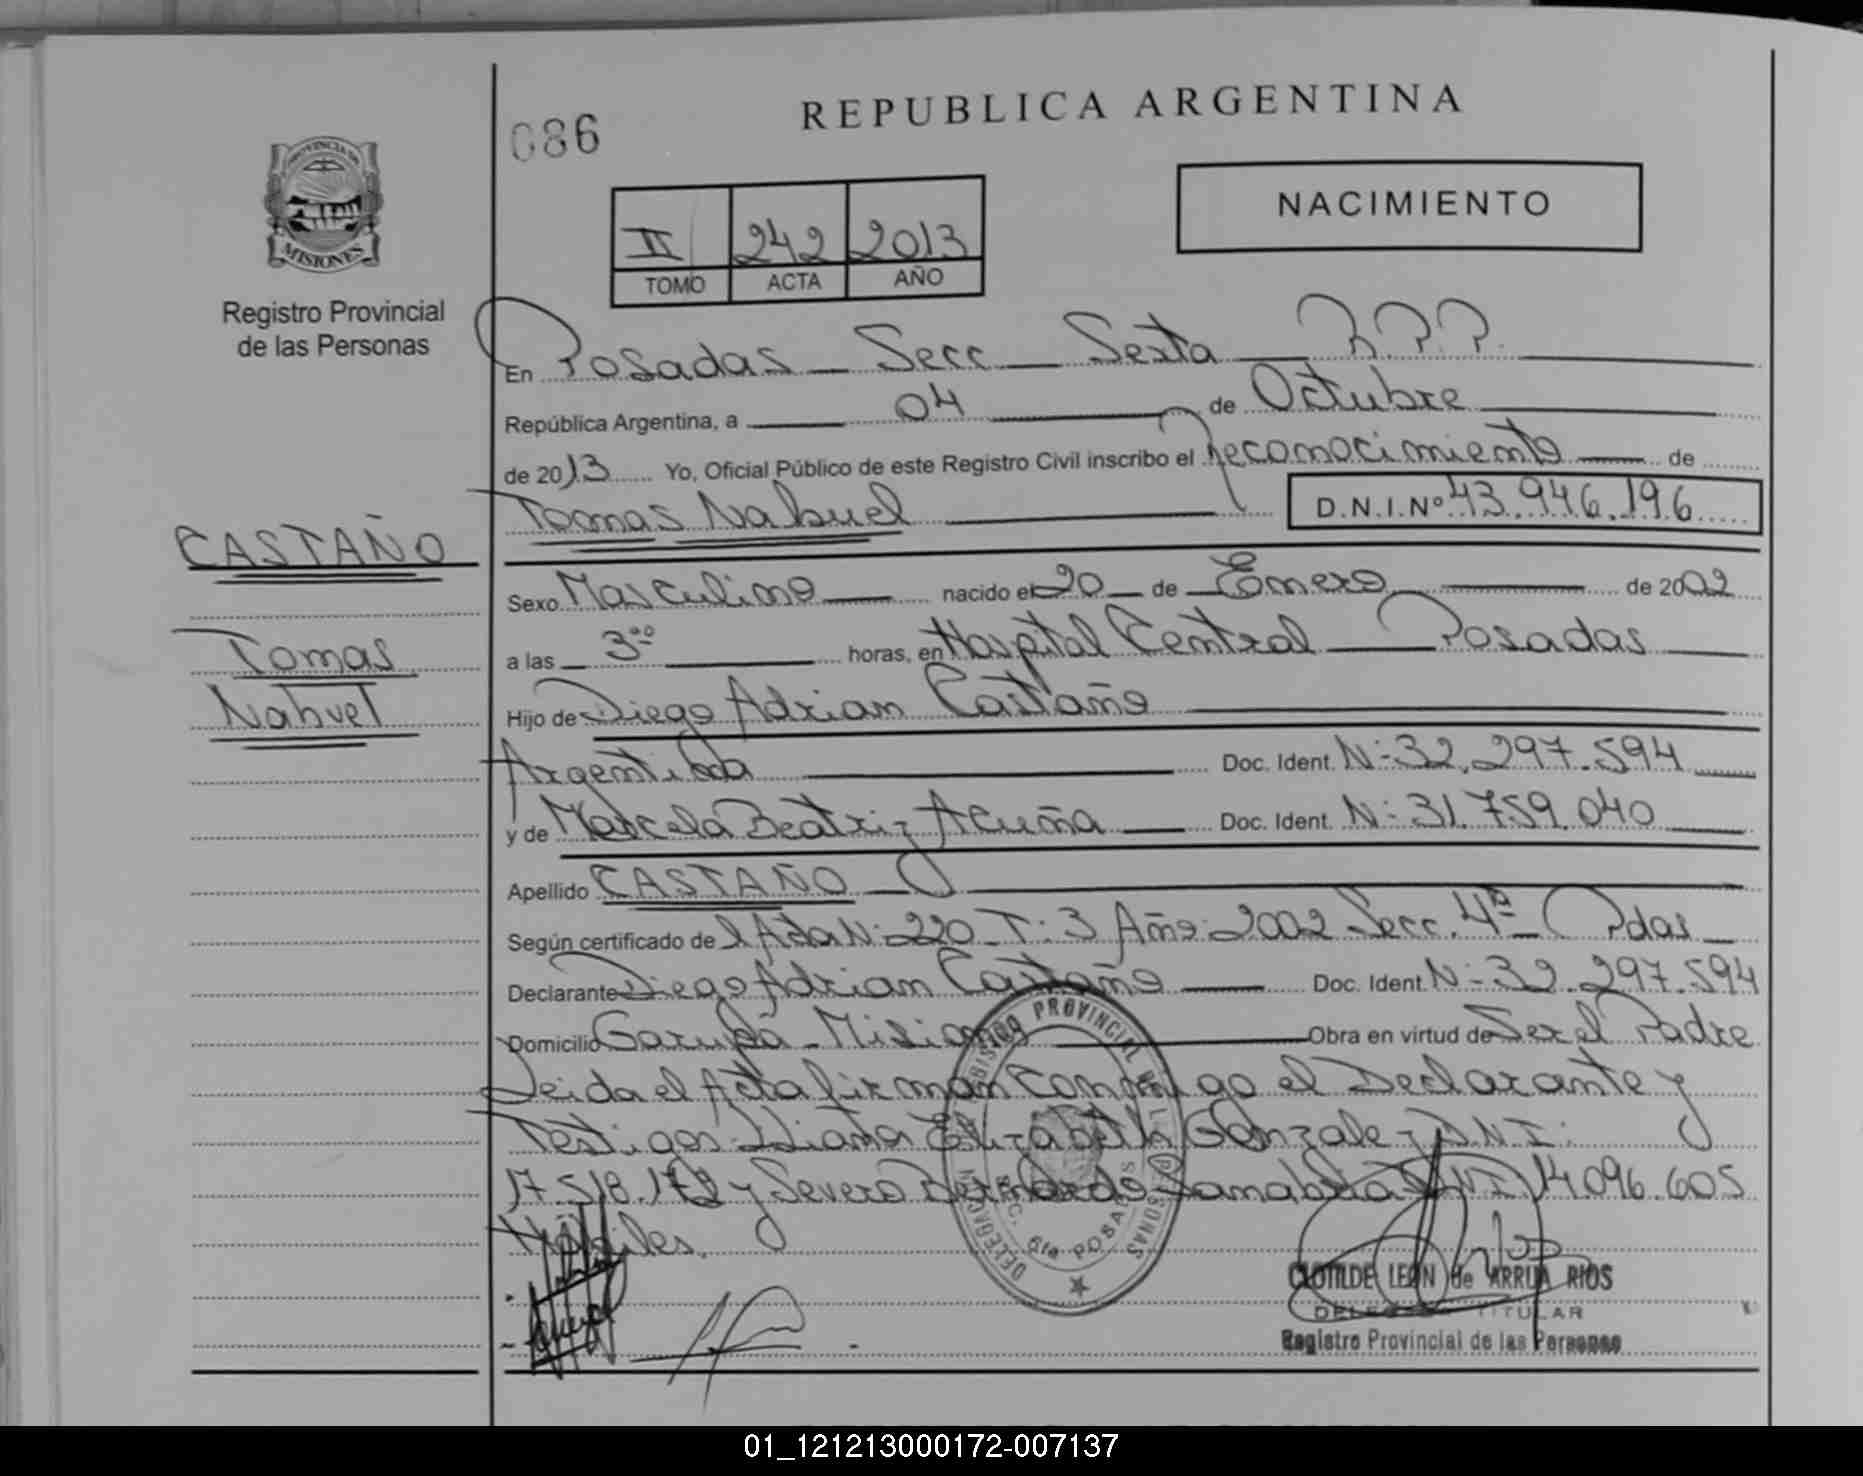 086
REPUBLICA ARGENTINA
PROVINCIA DE
MISIONES
Registro Provincial
de las Personas
NACIMIENTO
II 242 2013
TOMO ACTA AÑO
En Posadas Secc Sexta R.P.P.
República Argentina, a 04 de Octubre
de 2013 Yo, Oficial Público de este Registro Civil inscribo el Reconocimiento de
Tomas Nahuel D.N.I.Nº 43.946.196
CASTAÑO
Tomas
Nahuel
Sexo Masculino nacido el 20 de Enero de 2002
a las 3⁰⁰ horas, en Hospital Central Posadas
Hijo de Diego Adrian Castaño
Argentina Doc. Ident. Nº 32.297.594
y de Marcela Beatriz Acuña Doc. Ident. Nº 31.759.040
Apellido CASTAÑO
Según certificado de l Acta Nº 220 T: 3 Año: 2002 Secc. 4ª Pdas
Declarante Diego Adrian Castaño Doc. Ident. Nº 32.297.594
Domicilio Garupá - Misiones Obra en virtud de Ser el Padre
Leida el Acta firman conmigo el Declarante y
Testigos: Liliana Elizabeth Gonzalez D.N.I:
17.518.172 y Severo Bernardo Sanabria DNI 14.096.605
Hábiles.
REGISTRO PROVINCIAL DE LAS PERSONAS
DELEGACION
SECC. 6ta POSADAS
CLOTILDE LEON de ARRUA RIOS
DELEGADA TITULAR
Registro Provincial de las Personas
01_121213000172-007137